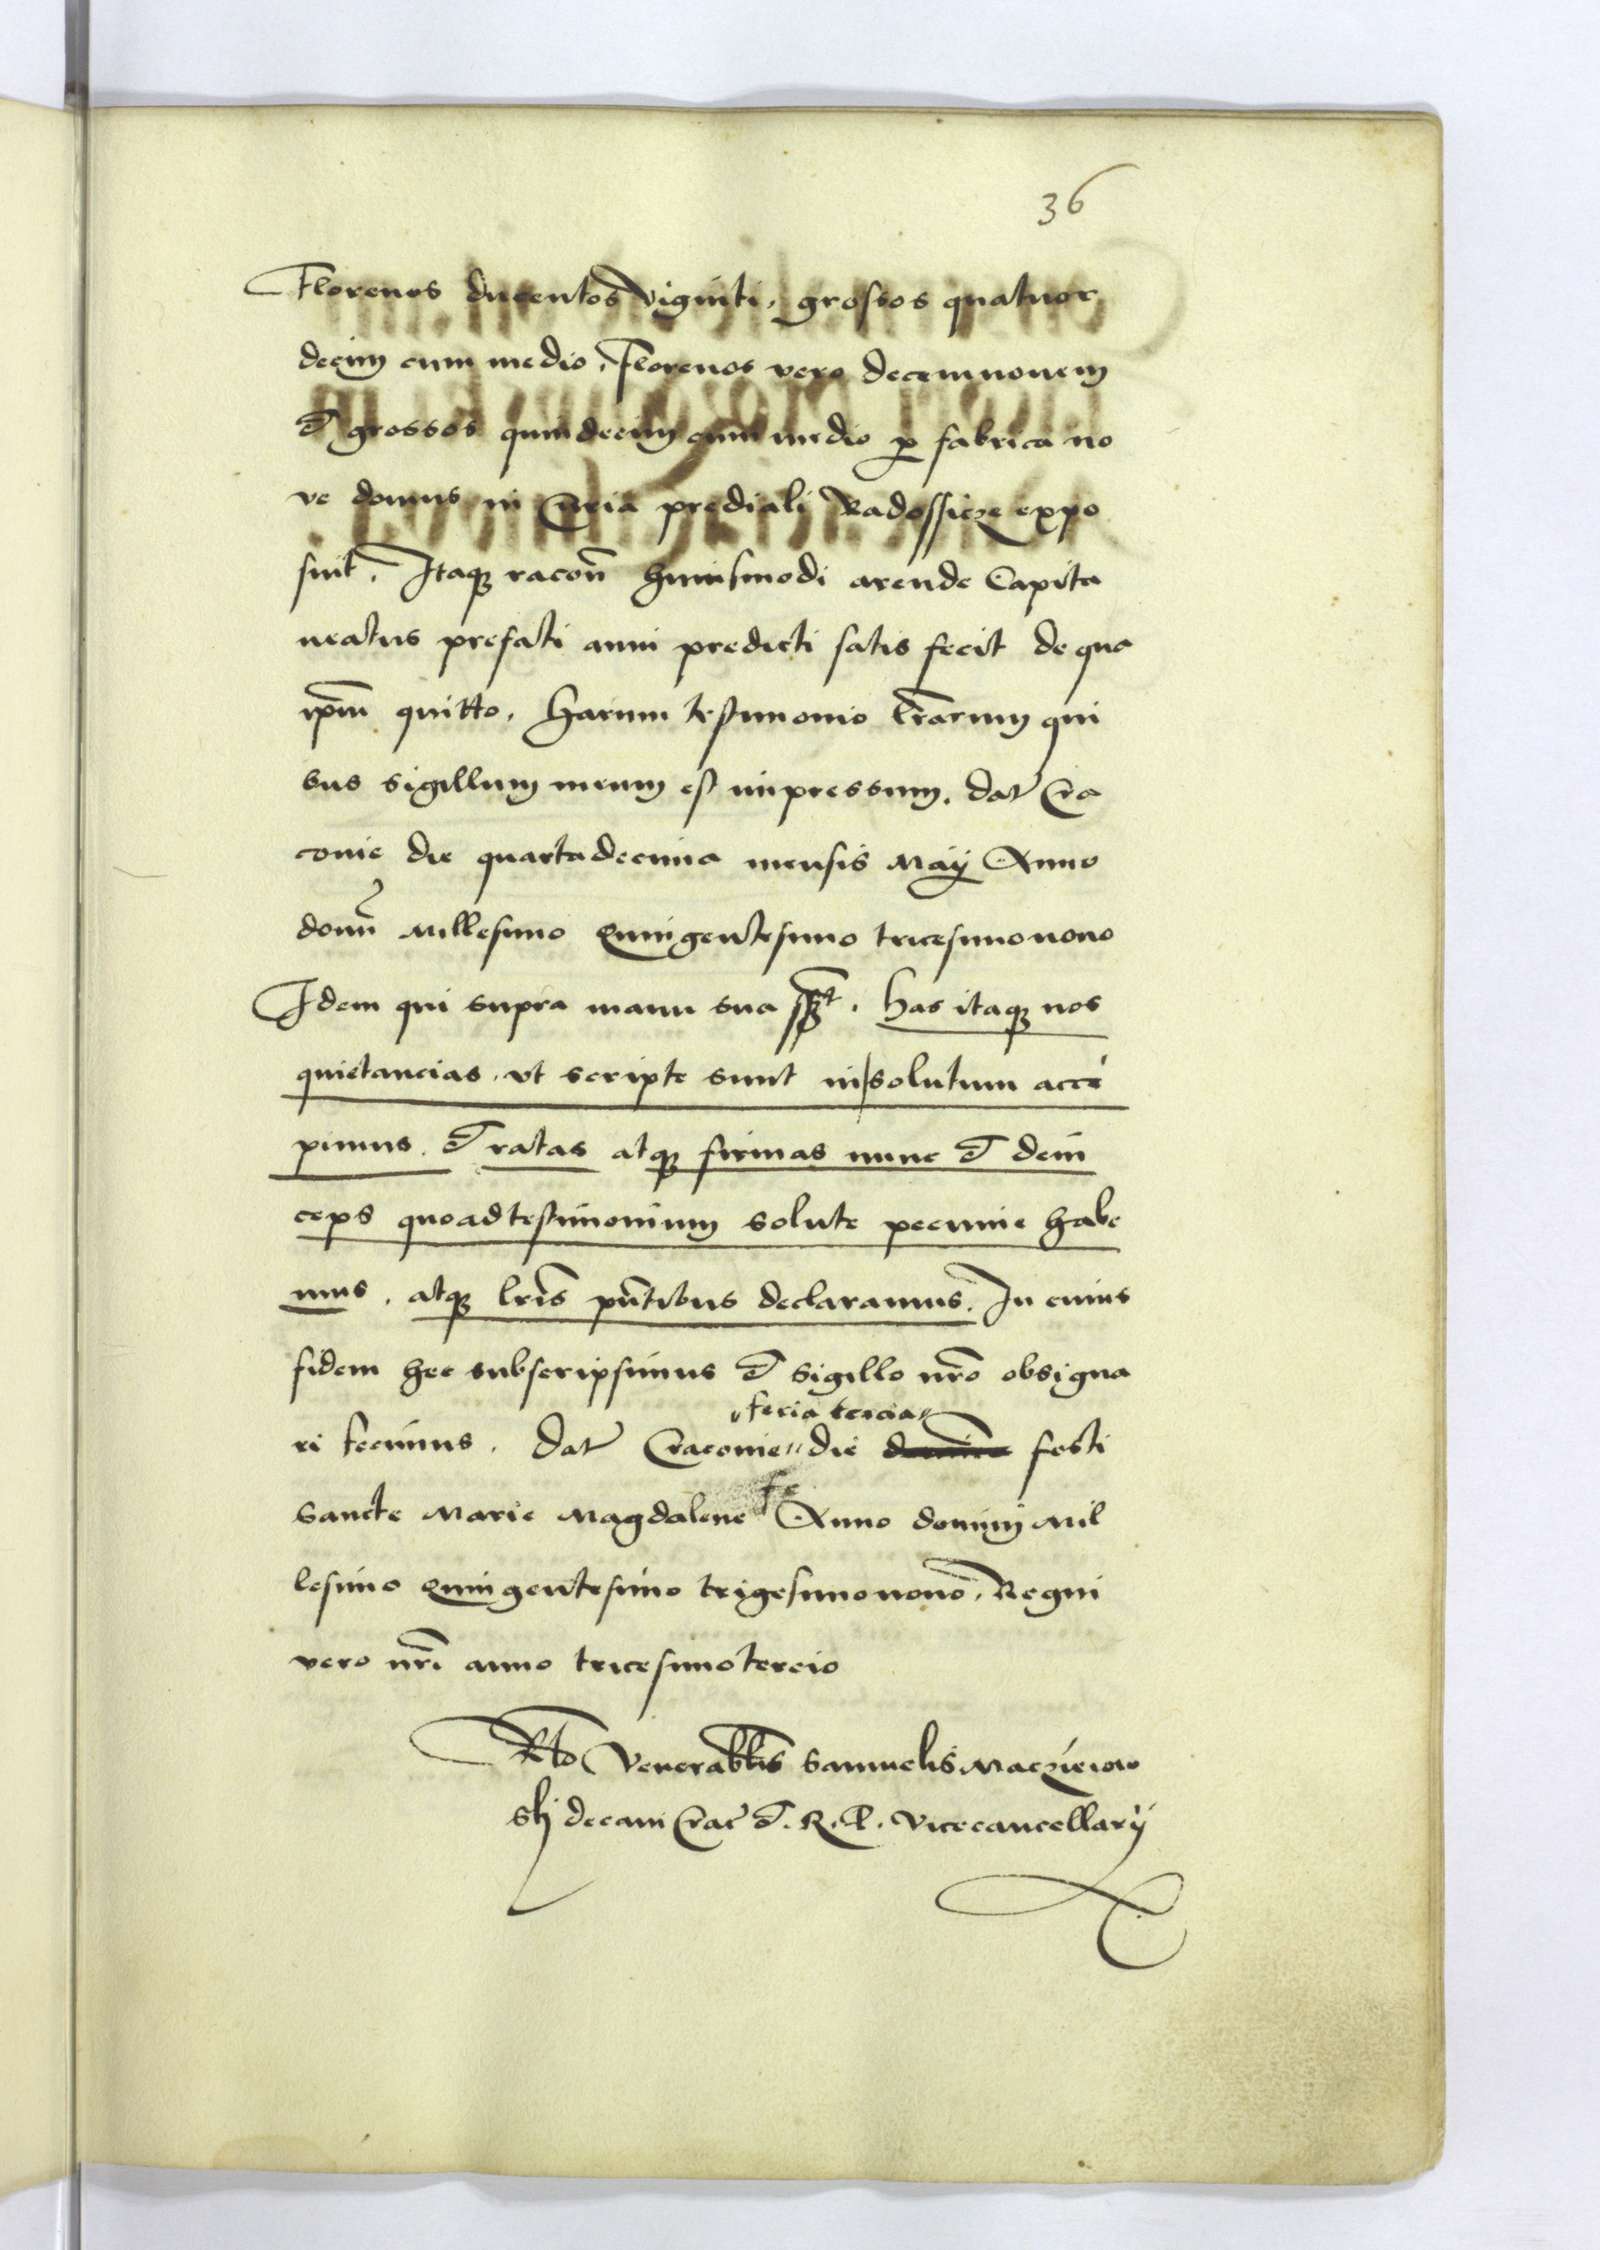 36
Florenos ducentos viginti, grossos quatuor
decim cum medio, Florenos vero decemnovem
et grossos quindecim cum medio p fabrica no
ve domus in Curia prediali Radossicze expo
suit. Itaq racon huiusmodi arende Capita
neatus prefati anni predicti satis fecit de qua
ipm quitto. Harum testimonio lrarum qui
bus sigillum meum est impressum. Dat Cra
covie die quartadecima mensis Maij Anno
domi Millesimo Quingentesimo tricesimonono
Idem qui supra manu sua sszt. Has itaq nos
quietancias, ut scripte sunt in solutum acce
pimus. et ratas atq firmas nunc et dein
ceps quoad testimonium solute pecunie habe
mus. atq lris pntibus declaramus. In cuius
fidem hec subscripsimus et sigillo nro obsigna
feria tercia
ri fecimus. Dat Cracovie die festi
sancte Marie Magdalene Anno domini Mil
lesimo Quingentesimo trigesimonono. Regni
vero nri anno tricesimotercio
Rto Venerablis Samuelis Maczieiow
skj decani Crac et. R. P. Vicecancellarij